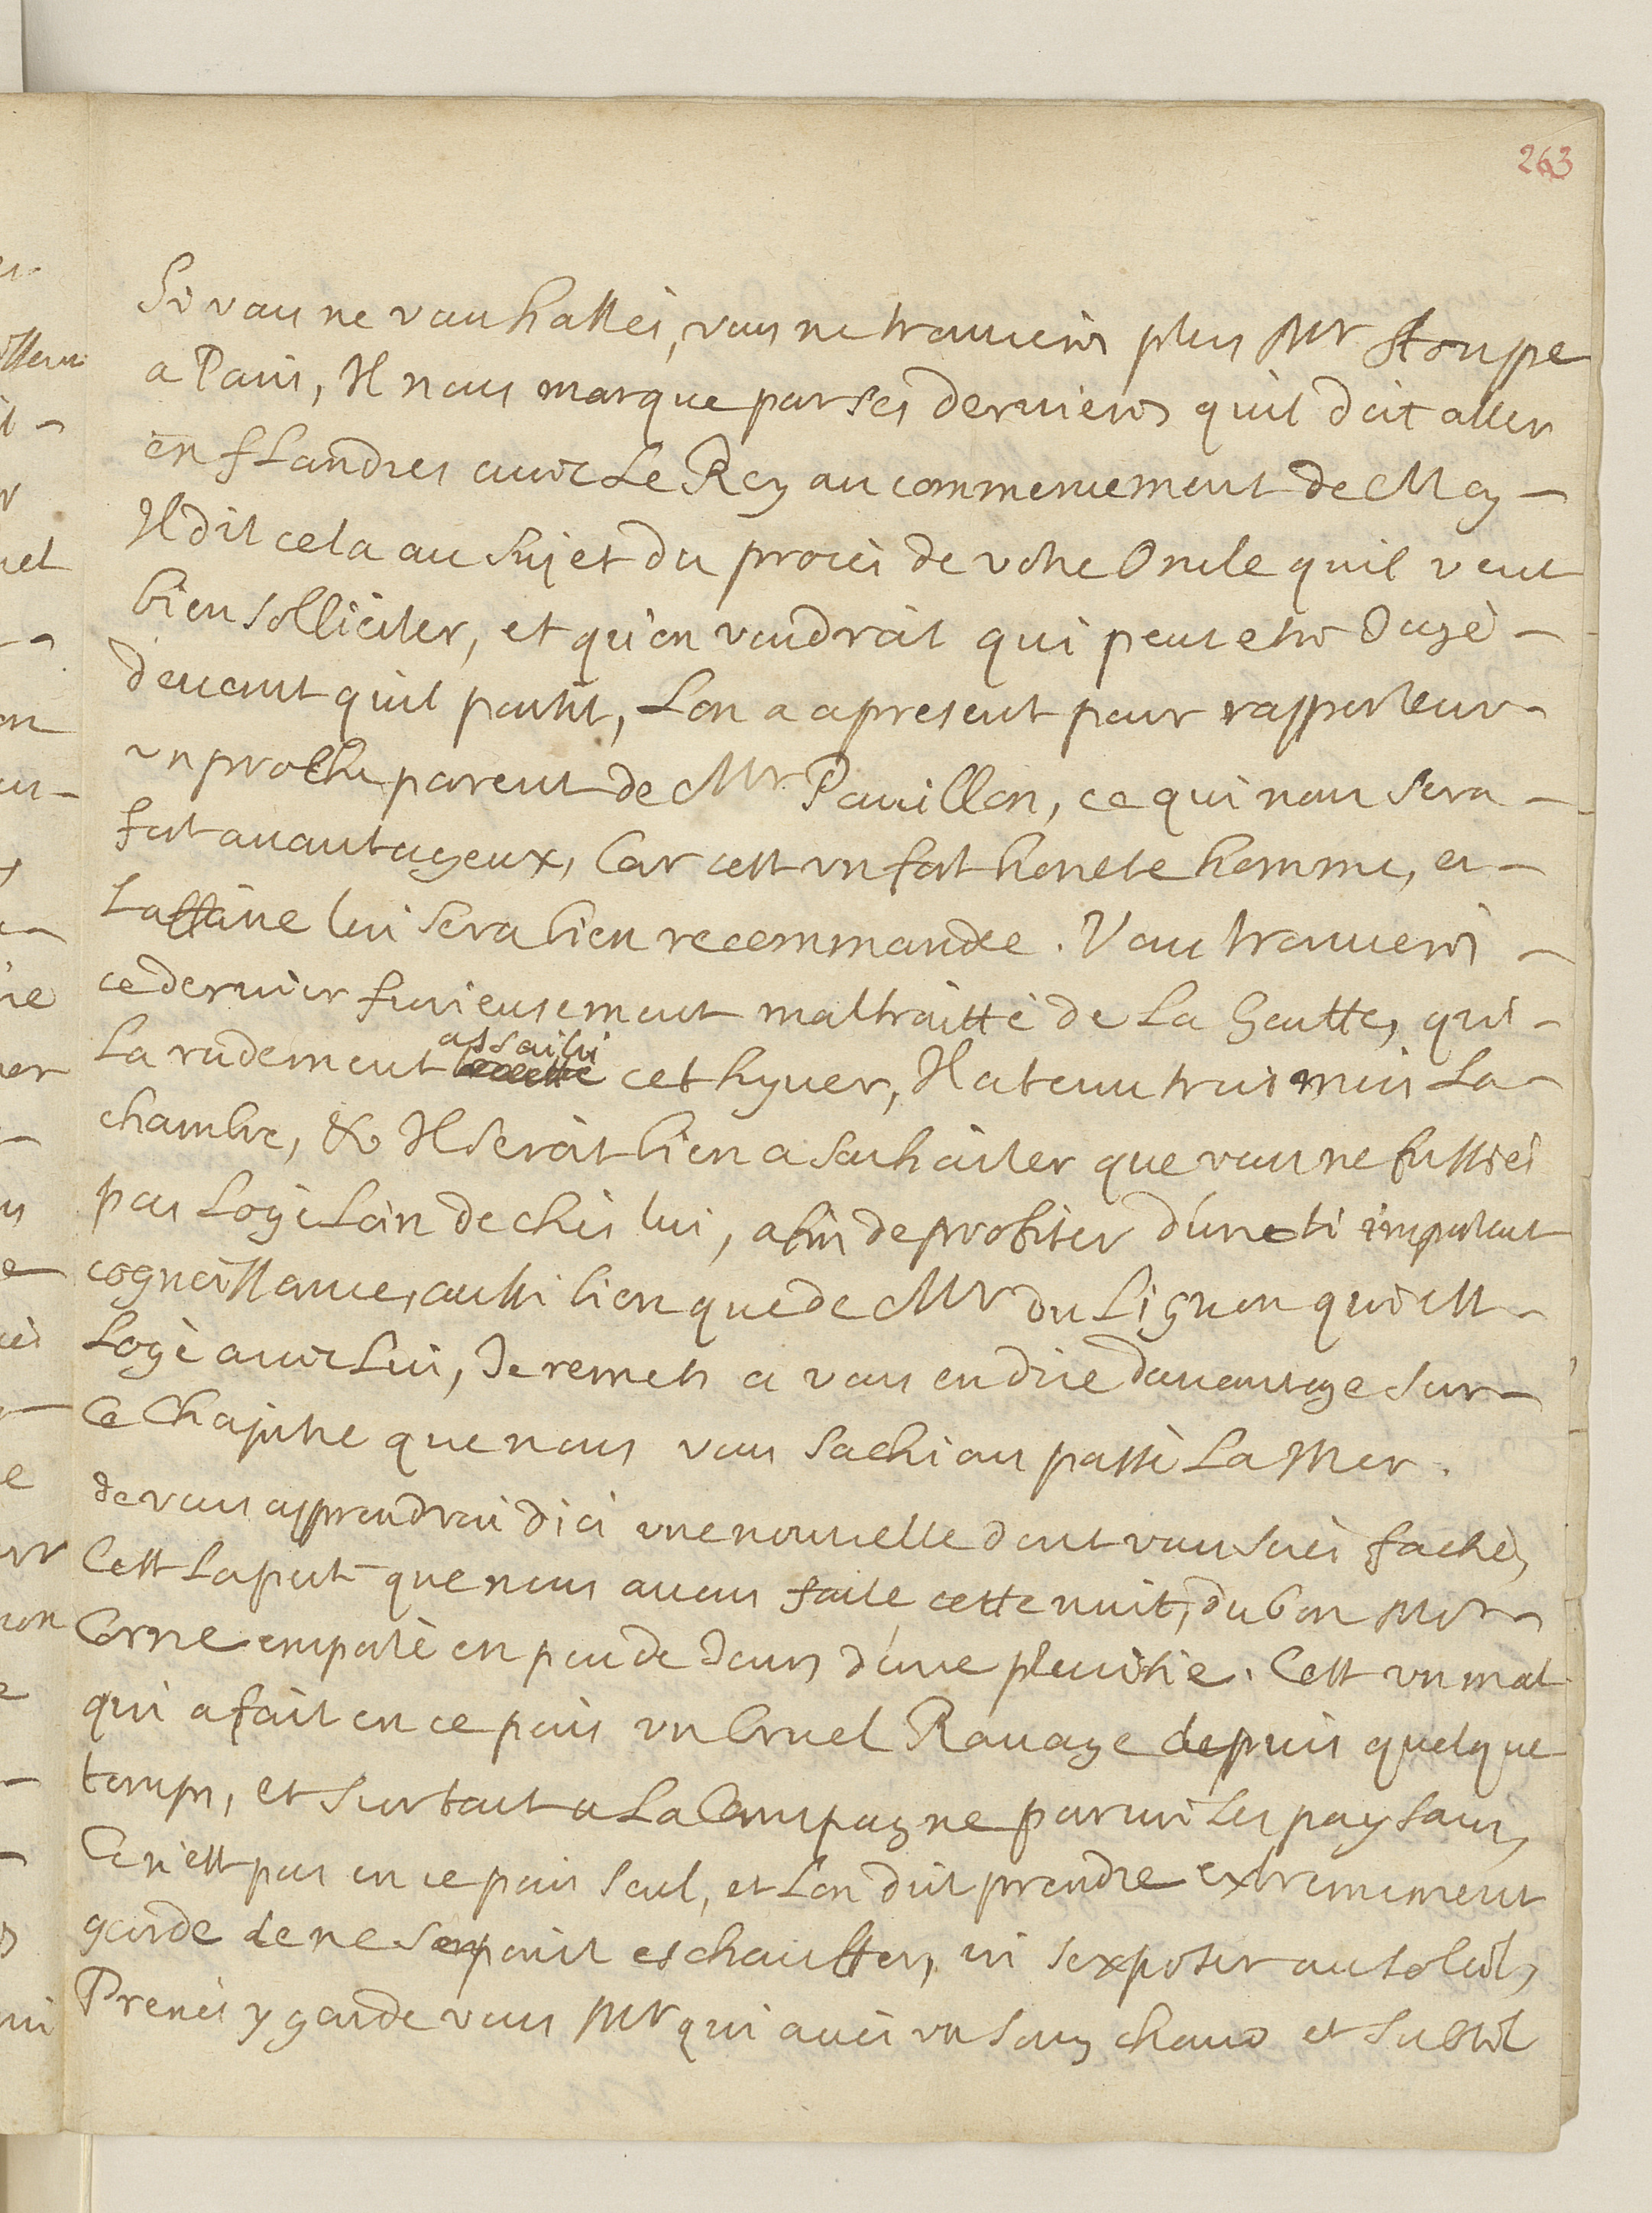 263
Si vous ne vous hastés, vous ne trouverés plus Mr Stoupe
a Paris, Il nous marque par ses dernieres quil doit aller
en fLandres avec Le Roy au commencement de May -
Il dit cela au Sujet du procés de vostre Oncle quil veut
bien solliciter, et qu'on voudroit qui peut estre Jugé -
devant quil partit, Lon a apresent pour rapporteur -
un proche parent de Mr Pavillon, ce qui nous sera -
fort avantageux, Car cest un fort honeste homme, et -
Laffaire lui sera bien recommandée. Vous trouverés -
ce dernier furieusement maltraitté de La Goutte, qui -
La rudement assailli cet hyver, Il a tenu trois mois La -
chambre, & Il seroit bien a souhaiter que vous ne fussiés
pas Logé Loin de chés lui, afin de profiter d'une si important
cognoissance, aussi bien que de Mr du Lignon qui est -
Logé avec Lui, Je remets a vous en dire davantage sur -
Ce Chapitre que nous vous sachions passé La Mer.
Je vous apprendrai d'ici une nouvelle dont vous serés faché,
Cest La perte que nous avons faite cette nuit, du bon Mr -
Corne emporté en peu de Jours d'une pleurisie. Cest un mal
qui a fait en ce païs un Cruel Ravage depuis quelque
temps, et surtout a La Campagne parmi Les paysans,
Ce n'est pas en ce païs seul, et Lon doit prendre extremement
garde de ne se point eschauffer, ni s'exposer au soleil,
Prenés y garde vous Mr qui avés un sang chaud et subtil